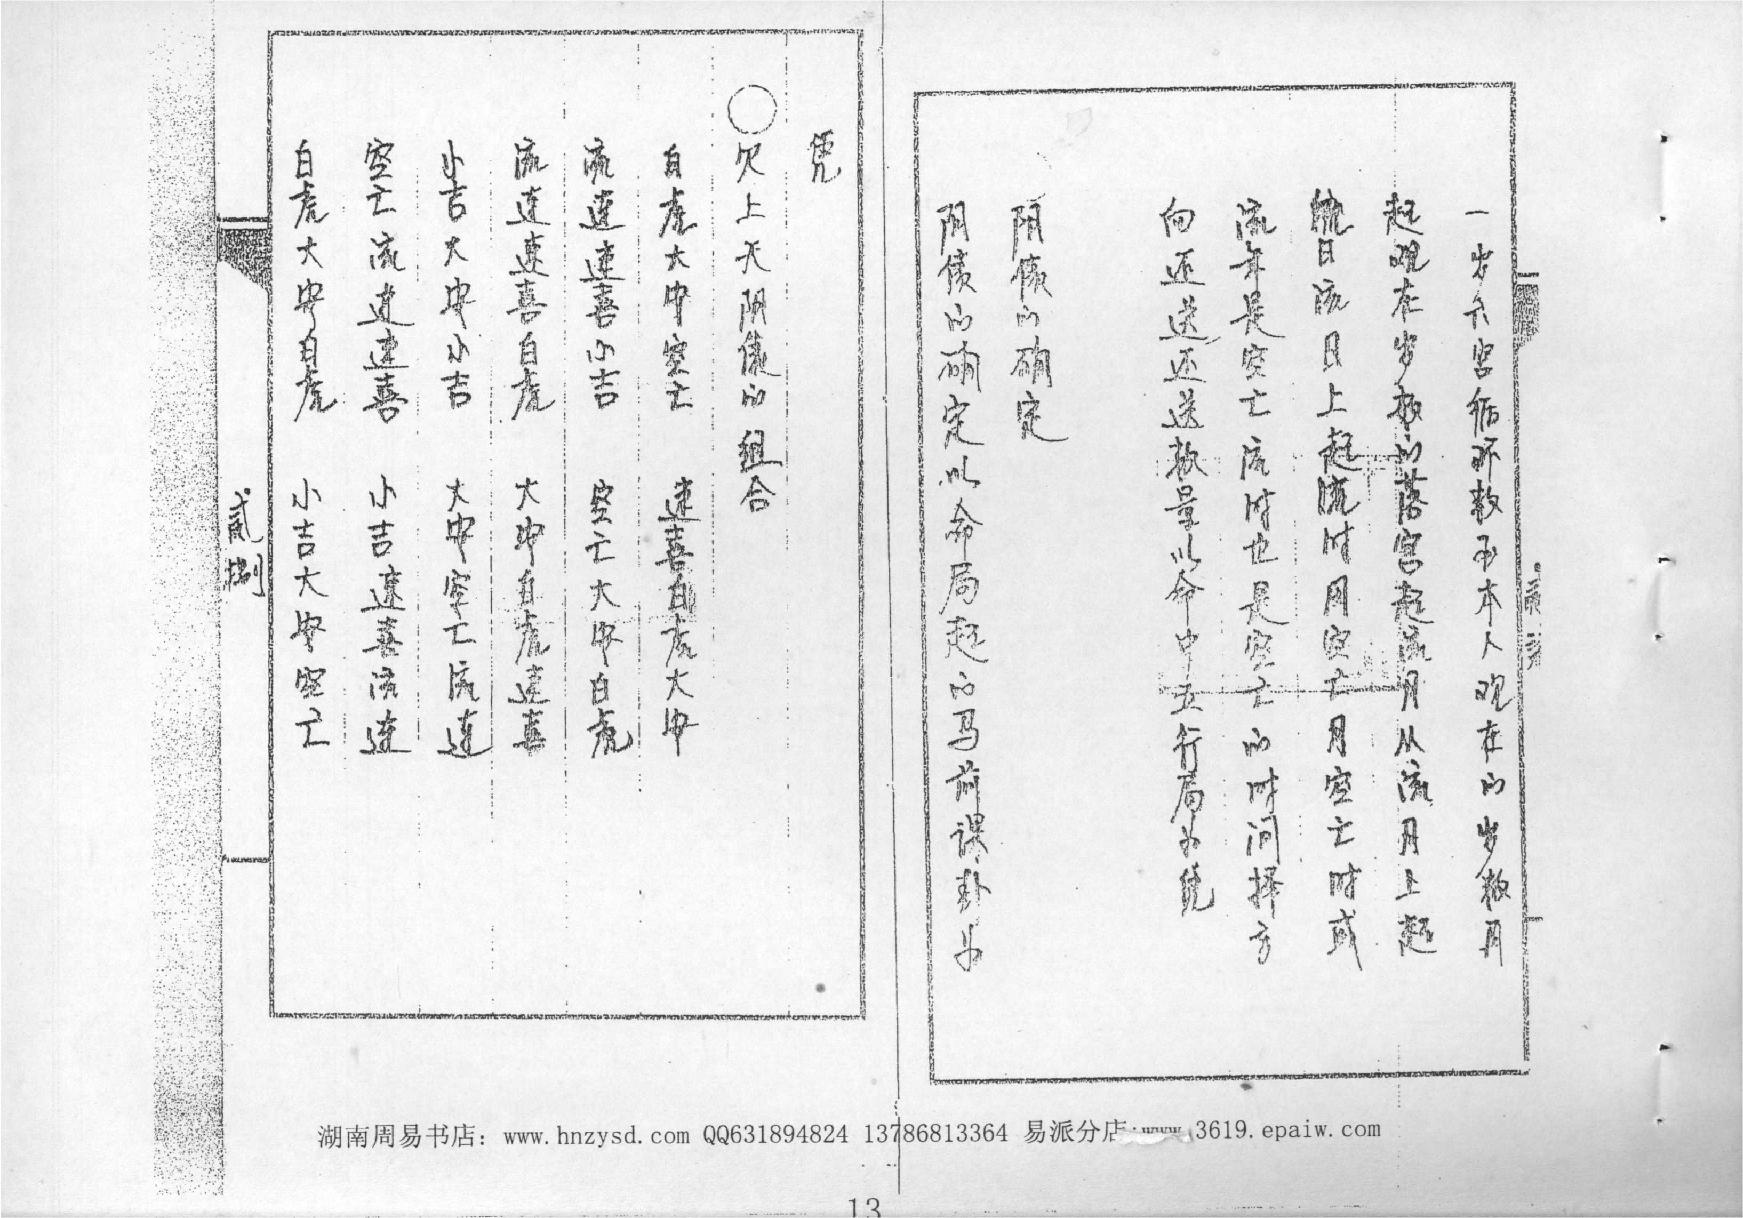 一岁六宫循环数至本人现在的岁数再
起现在岁数的落宫起流月从流月上起
流日流日上起流时用空亡月空亡时或
流年是空亡流时也是空亡的时间择方
向还送还送数量以命中五行局为凭
阴债的确定
阴债的确定以命局起的马前课卦为
贰柒
凭
〇欠上天阴债的组合
白虎大安空亡 速喜白虎大安
流连速喜小吉 空亡大安白虎
流连速喜白虎 大安白虎速喜
小吉大安小吉 大安空亡流连
空亡流连速喜 小吉速喜流连
白虎大安白虎 小吉大安空亡
贰捌
湖南周易书店：www.hnzysd.com QQ631894824 13786813364 易派分店:www.3619.epaiw.com
13